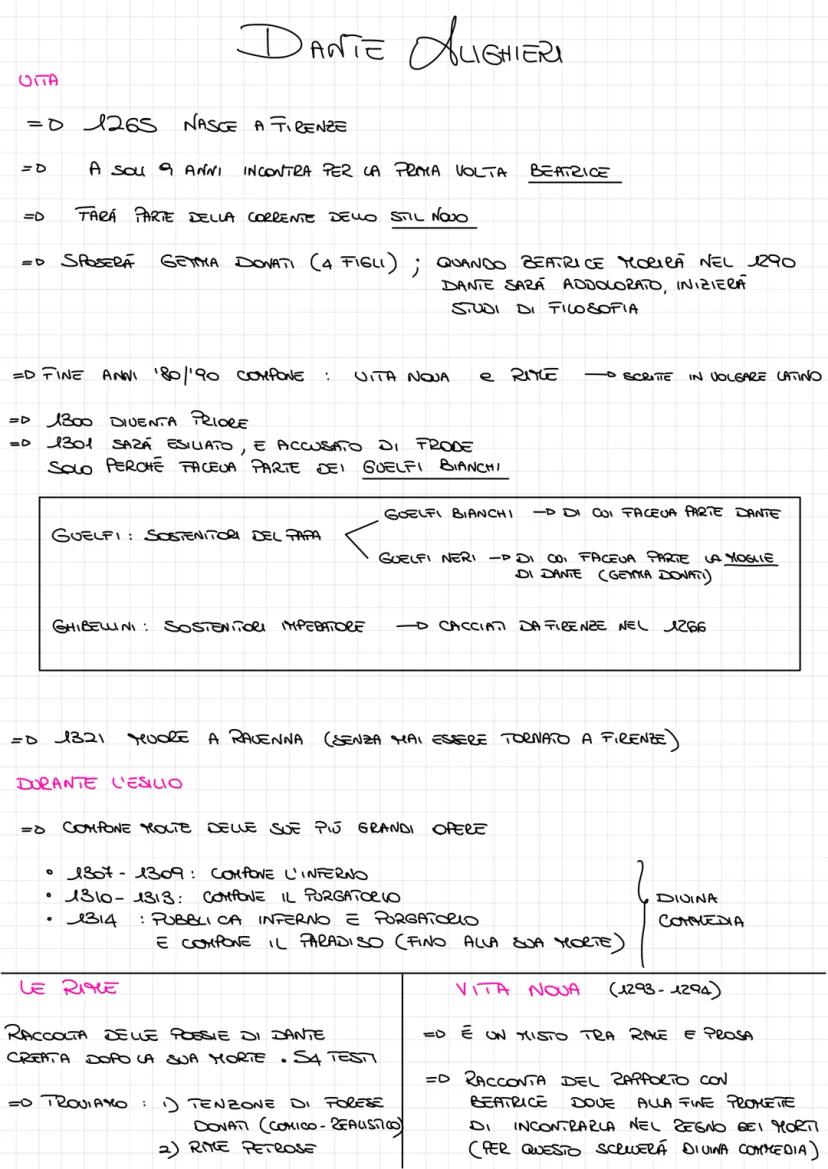 DANTE ALIGHIERI
VITA
=D 1265 NASCE A FIRENZE
=D A SOLI 9 ANNI INCONTRA PER LA PRIMA VOLTA BEATRICE
=D FARÁ PARTE DELLA CORRENTE DELLO STIL NOVO
=D SPOSERÁ GEMMA DONATI (4 FIGLI) ; QUANDO BEATRICE MORIRÁ NEL 1290
DANTE SARÁ ADDOLORATO, INIZIERÁ
STUDI DI FILOSOFIA
=D FINE ANNI '80/'90 COMPONE : VITA NOVA e RIME —D SCRITTE IN VOLGARE LATINO
=D 1300 DIVENTA PRIORE
=D 1301 SARÁ ESILIATO, E ACCUSATO DI FRODE
SOLO PERCHÉ FACEVA PARTE DEI GUELFI BIANCHI
GUELFI BIANCHI —D DI CUI FACEVA PARTE DANTE
GUELFI : SOSTENITORI DEL PAPA
GUELFI NERI —D DI CUI FACEVA PARTE LA MOGLIE
DI DANTE (GEMMA DONATI)
GHIBELLINI : SOSTENITORI IMPERATORE —D CACCIATI DA FIRENZE NEL 1266
=D 1321 MUORE A RAVENNA (SENZA MAI ESSERE TORNATO A FIRENZE)
DURANTE L'ESILIO
=D COMPONE MOLTE DELLE SUE PIÚ GRANDI OPERE
• 1307 - 1309 : COMPONE L'INFERNO
• 1310 - 1313 : COMPONE IL PURGATORIO
• 1314 : PUBBLICA INFERNO E PURGATORIO
E COMPONE IL PARADISO (FINO ALLA SUA MORTE)
DIVINA
COMMEDIA
LE RIME
RACCOLTA DELLE POESIE DI DANTE
CREATA DOPO LA SUA MORTE . 54 TESTI
=D TROVIAMO : 1) TENZONE DI FORESE
DONATI (COMICO - REALISTICO)
2) RIME PETROSE
VITA NOVA (1293 - 1294)
=D É UN MISTO TRA RIME E PROSA
=D RACCONTA DEL RAPPORTO CON
BEATRICE DOVE ALLA FINE PROMETE
DI INCONTRARLA NEL REGNO DEI MORTI
(PER QUESTO SCRIVERÁ DIVINA COMMEDIA)